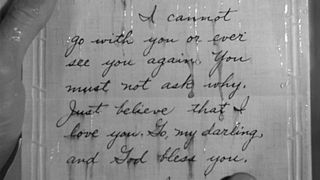 I cannot
go with you or ever
see you again. You
must not ask why.
Just believe that I
love you. Go, my darling,
and God bless you.